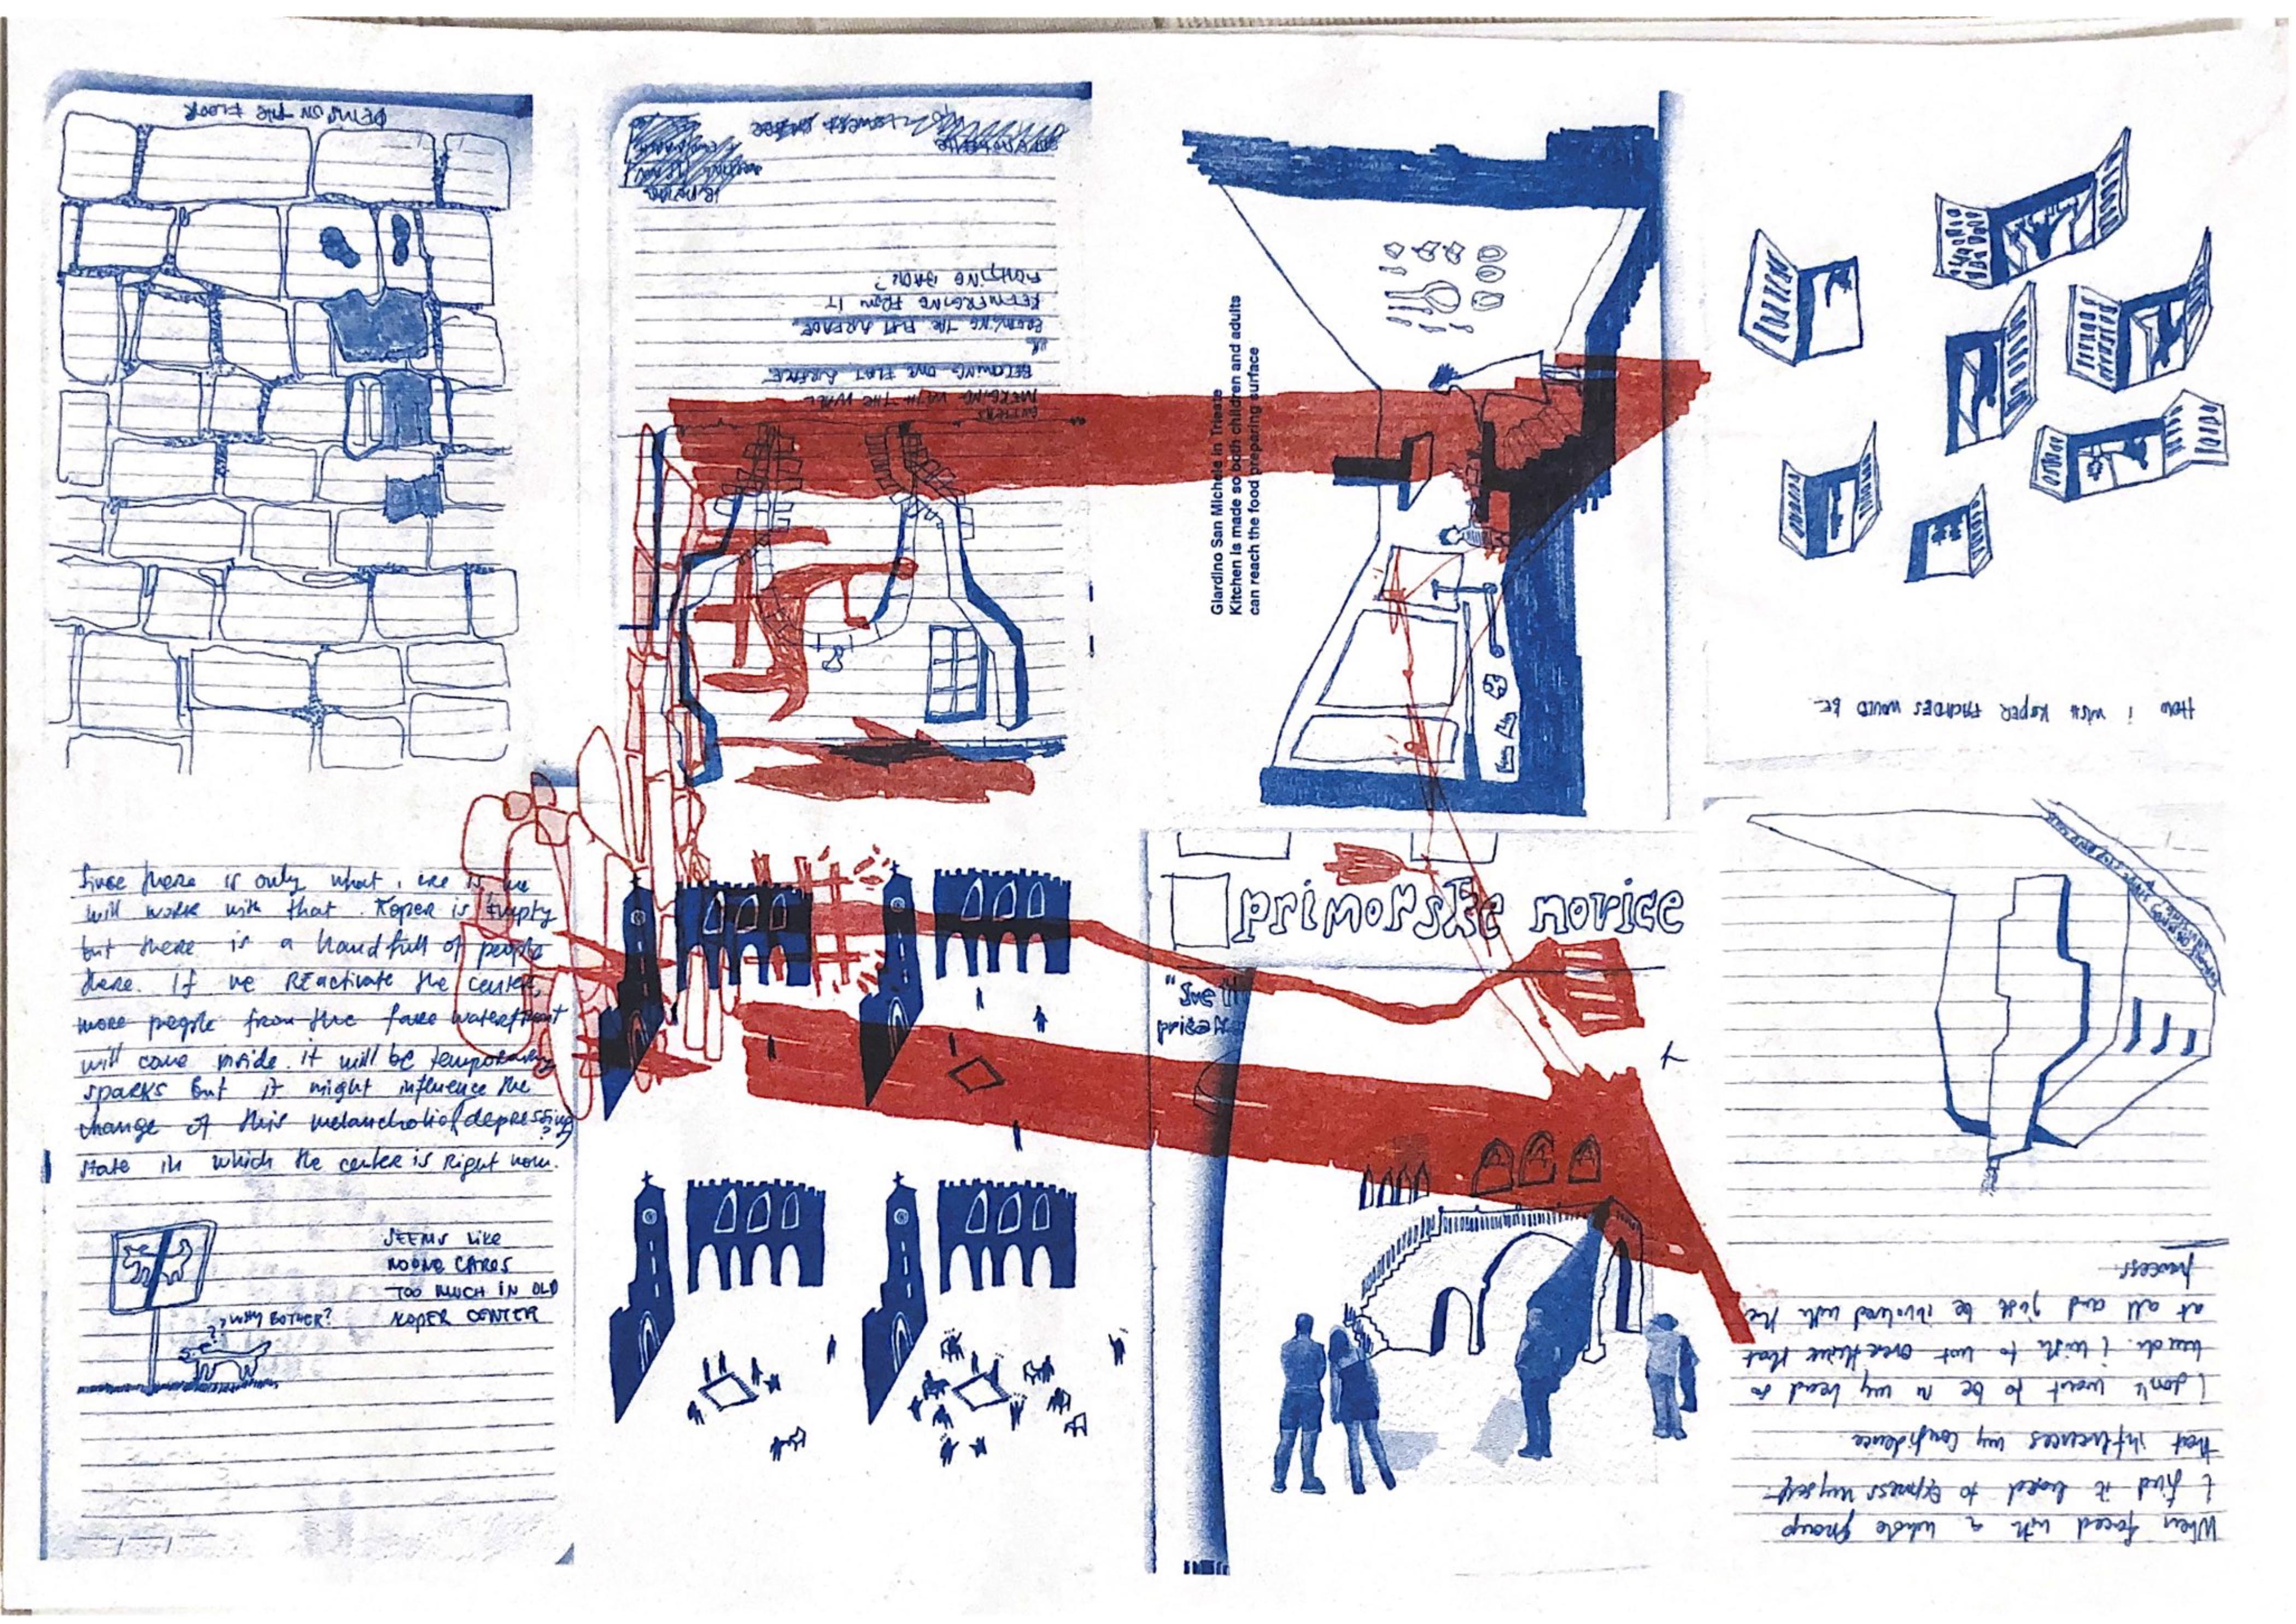 ITEMS ON THE FLOOR
MERGING WITH THE WALL
BECOMING ONE FLAT SURFACE
BECOMING THE FLAT SURFACE
REEMERGING FROM IT
FIGHTING BACK?
Giardino San Michele in Trieste
Kitchen is made so both children and adults
can reach the food preparing surface
HOW I WISH KOPER FACADES WOULD BE
Since there is only what, we
will work with that. Koper is Empty
but there is a handfull of people
there. If we REactivate the center,
more people from the fake waterfront
will come inside. it will be temporary
sparks but it might influence the
change of this melancholic/depressing
?
state in which the center is Right now.
SEEMS LIKE
NOONE CARES
TOO MUCH IN OLD
KOPER CENTER
?? WHY BOTHER?
primorske novice
When faced with a whole group
I find it hard to express myself
that influences my confidence.
I don't want to be in my head so
much. i wish to not overthink that
at all and just be involved with the
process.